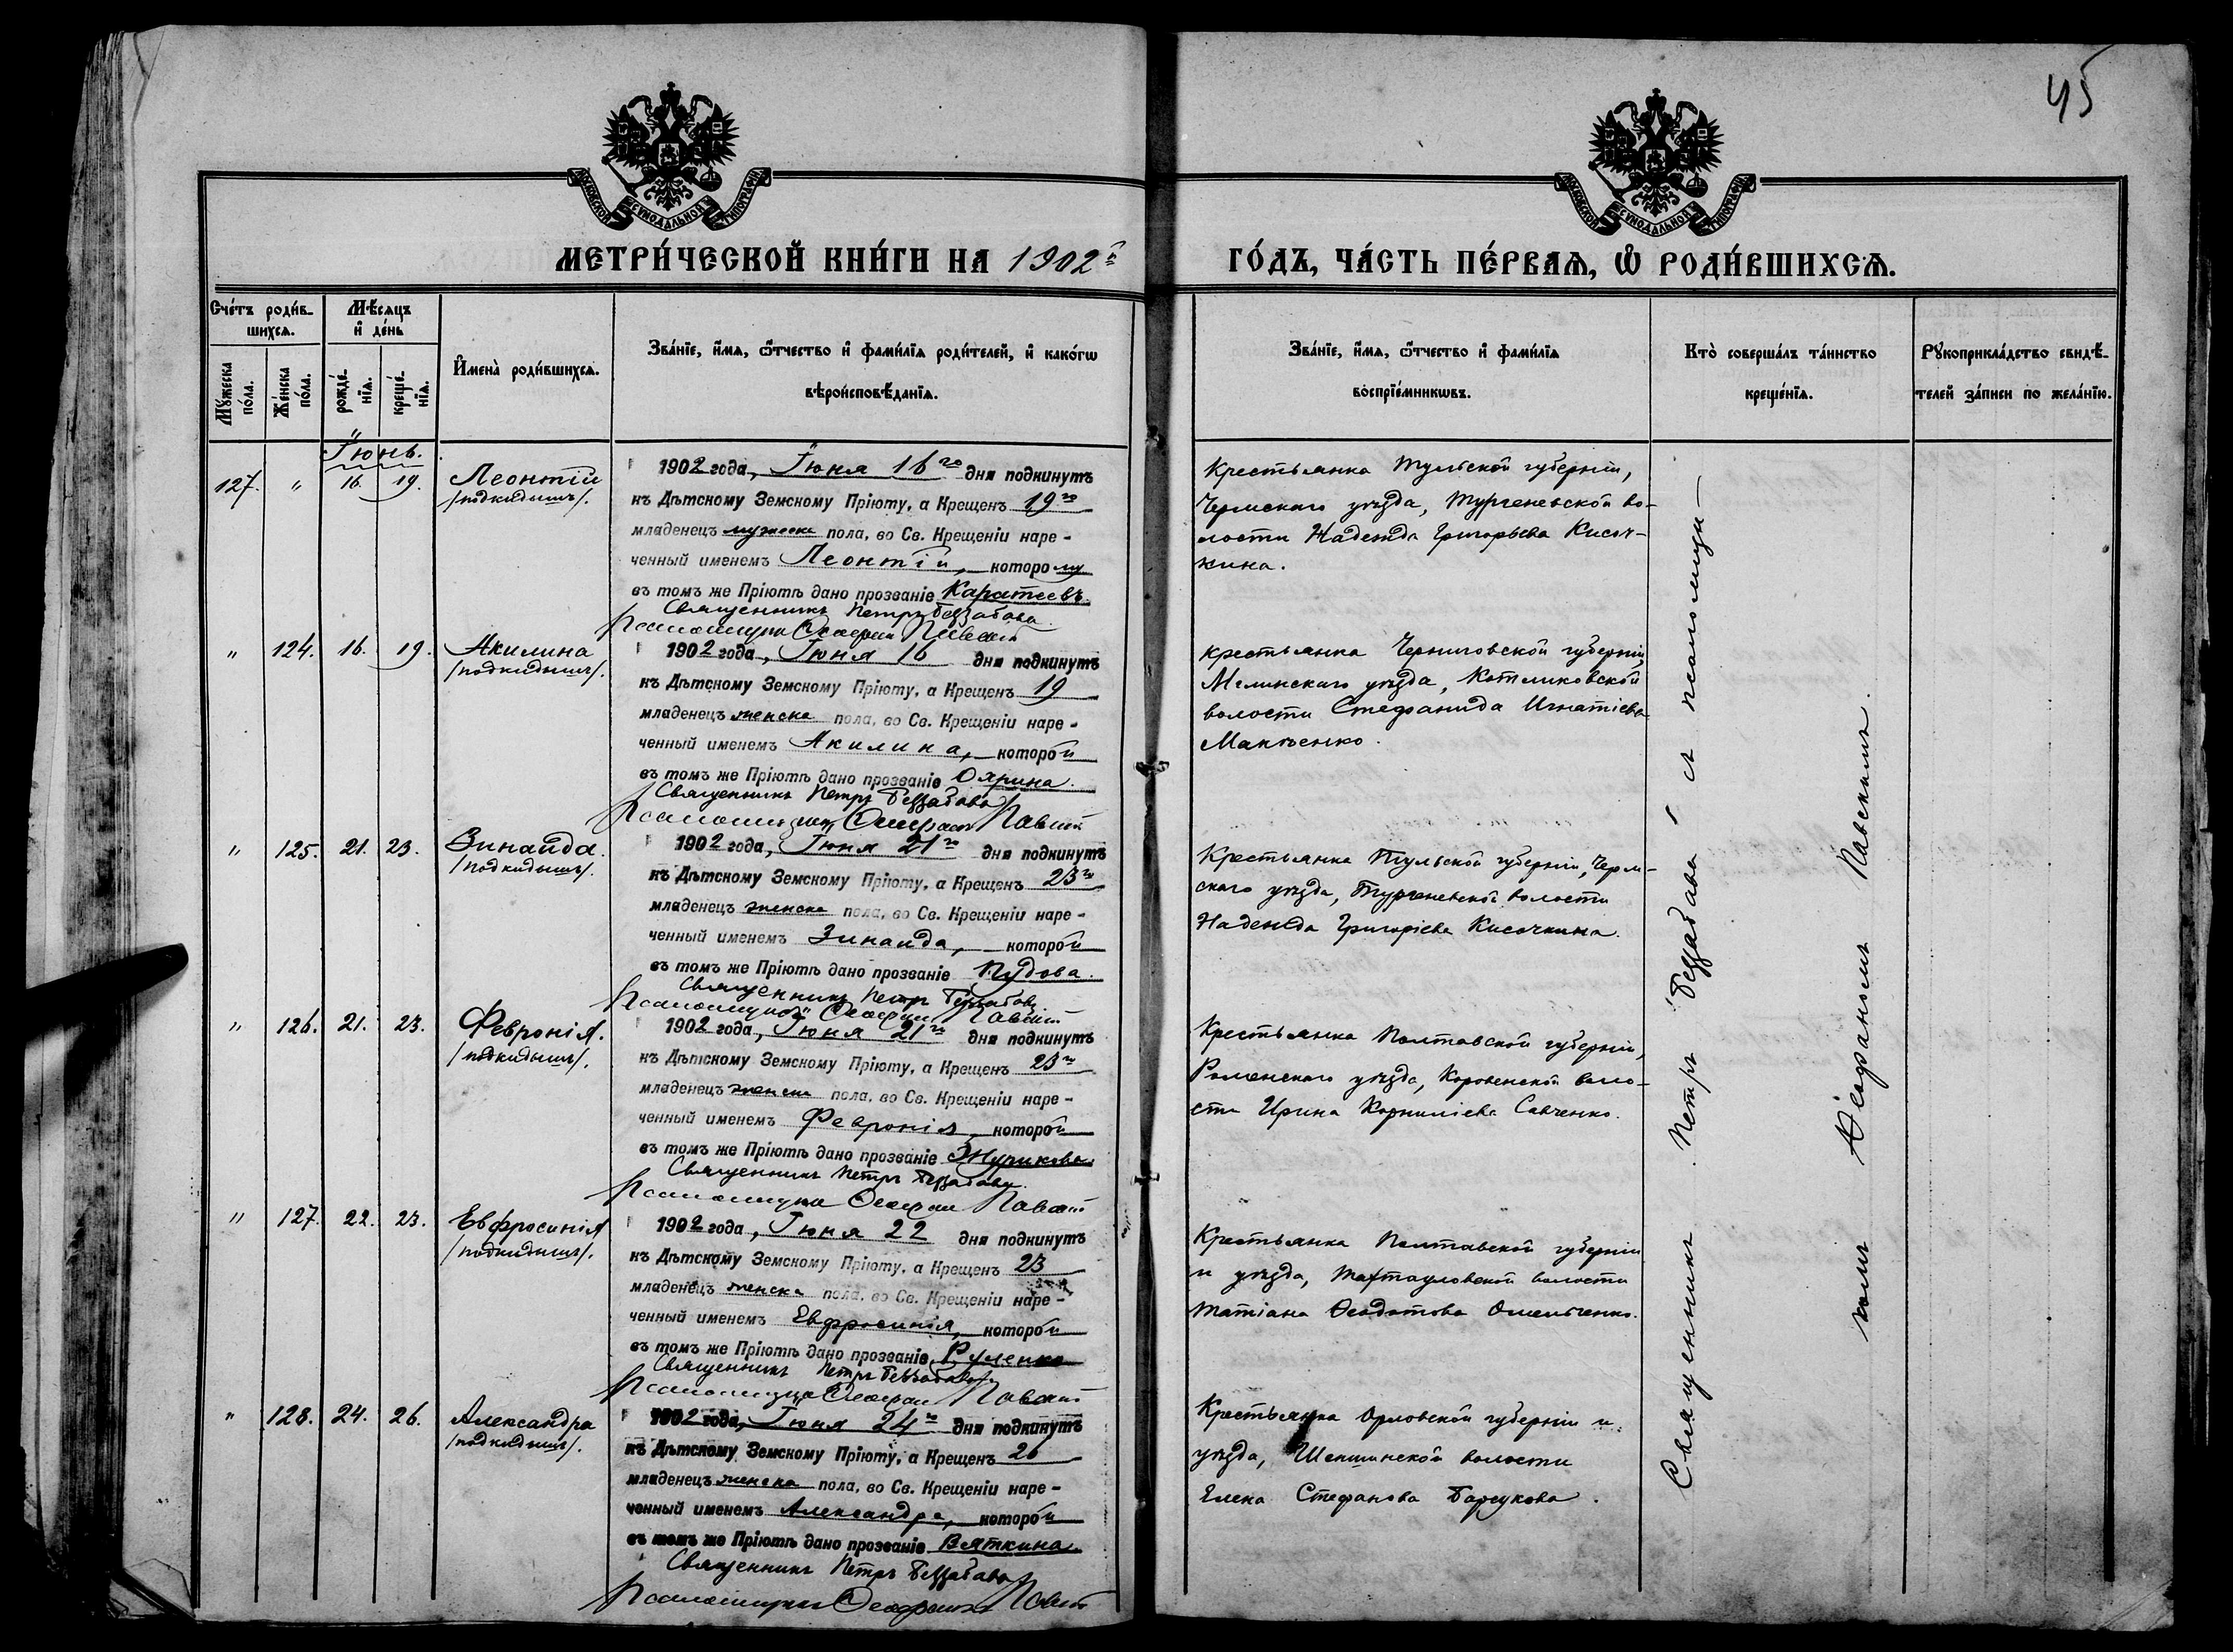 45
МОСКОВСКОЙ СѴНОДАЛЬНОЙ ТИПОГРАФІИ
МОСКОВСКОЙ СѴНОДАЛЬНОЙ ТИПОГРАФІИ
МЕТРИ́ЧЕСКОЙ КНИ́ГИ НА 1902й
ГО́ДЪ, ЧА́СТЬ ПЕ́РВАѦ, Ѡ РОДИ́ВШИХСѦ.
Сче́тъ роди́в-
шихсѧ.
Мꙋжеска по́ла.
Же́нска по́ла.
Мѣ́сѧцъ
и де́нь
рожде́-
нїѧ.
креще́-
нїѧ.
Имена̀ роди́вшихсѧ.
Зва́нїе, и́мѧ, ѻ́тчество и фами́лїѧ роди́телей, и како́гѡ
вѣроисповѣ́данїѧ.
Зва́нїе, и́мѧ, ѻ́тчество и фами́лїѧ
воспрїе́мникѡвъ.
Кто̀ соверша́лъ та́инство
креще́нїѧ.
Рꙋкоприкла́дство свидѣ́-
телей за́писи по жела́нїю.
Іюнь.
127. " 16. 19. Леонтій
/подкидышъ/.
1902 года, Іюня 16го дня подкинутъ
къ Дѣтскому Земскому Пріюту, а Крещенъ 19го
младенецъ мужеска пола, во Св. Крещеніи наре-
ченный именемъ Леонтій, которому
въ томъ же Пріютѣ дано прозваніе Каратеевъ.
Священникъ Петръ Беззабава
Псаломщикъ Ѳеофанъ Павскій
Крестьянка Тульской губерніи,
Чернскаго уѣзда, Тургеневской во-
лости Надежда Григорьева Кисоч-
кина.
" 124. 16. 19. Акилина
/подкидышъ/.
1902 года, Іюня 16 дня подкинутъ
къ Дѣтскому Земскому Пріюту, а Крещенъ 19
младенецъ женска пола, во Св. Крещеніи наре-
ченный именемъ Акилина, которой
въ томъ же Пріютѣ дано прозваніе Оярина.
Священникъ Петръ Беззабава
Псаломщикъ Ѳеофанъ Павскій
крестьянка Черниговской губерніи,
Мглинскаго уѣзда, Котляковской
волости Стефанида Игнатіева
Макѣенко.
" 125. 21. 23. Зинаида.
/подкидышъ/.
1902 года, Іюня 21го дня подкинутъ
къ Дѣтскому Земскому Пріюту, а Крещенъ 23го
младенецъ женска пола, во Св. Крещеніи наре-
ченный именемъ Зинаида, которой
въ томъ же Пріютѣ дано прозваніе Пудова.
Священникъ Петръ Беззабава
Псаломщикъ Ѳеофанъ Павскій
Крестьянка Тульской губерніи, Черн-
скаго уѣзда, Тургеневской волости
Надежда Григоріева Кисочкина.
" 126. 21. 23. Февронія.
/подкидышъ/.
1902 года, Іюня 21го дня подкинутъ
къ Дѣтскому Земскому Пріюту, а Крещенъ 23го
младенецъ женска пола, во Св. Крещеніи наре-
ченный именемъ Февронія, которой
въ томъ же Пріютѣ дано прозваніе Жучикова
Священникъ Петръ Беззабава.
Псаломщикъ Ѳеофанъ Павскій
Крестьянка Полтавской губерніи,
Роменскаго уѣзда, Коровенской воло-
сти Ирина Корниліева Савченко.
" 127. 22. 23. Евфросинія
/подкидышъ/.
1902 года, Іюня 22 дня подкинутъ
къ Дѣтскому Земскому Пріюту, а Крещенъ 23
младенецъ женска пола, во Св. Крещеніи наре-
ченный именемъ Евфросинія, которой
въ томъ же Пріютѣ дано прозваніе Руленко
Священникъ Петръ Беззабава
Псаломщикъ Ѳеофанъ Павскій
Крестьянка Полтавской губерніи
и уѣзда, Тахтауловской волости
Татіана Ѳеодотова Омельченко.
" 128. 24. 26. Александра
/подкидышъ/.
1902 года, Іюня 24го дня подкинутъ
къ Дѣтскому Земскому Пріюту, а Крещенъ 26
младенецъ женска пола, во Св. Крещеніи наре-
ченный именемъ Александра, которой
въ томъ же Пріютѣ дано прозваніе Вяткина.
Священникъ Петръ Беззабава
Псаломщикъ Ѳеофанъ Павскій
Крестьянка Орловской губерніи и
уѣзда, Шеншинской волости
Елена Стефанова Барсукова.
Священникъ Петръ Беззабава съ псаломщи-
комъ Ѳеофаномъ Павскимъ.